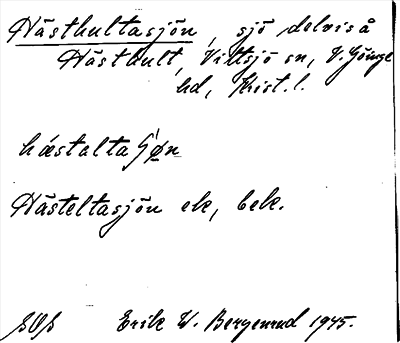 Hästhultasjön, sjö delvis å
Hästhult, Vittsjö sn, V. Göinge
hd, Krist. l.
hästalta
Hästeltasjön ek, bek.
SOS Erik W. Bergenrud 1945.